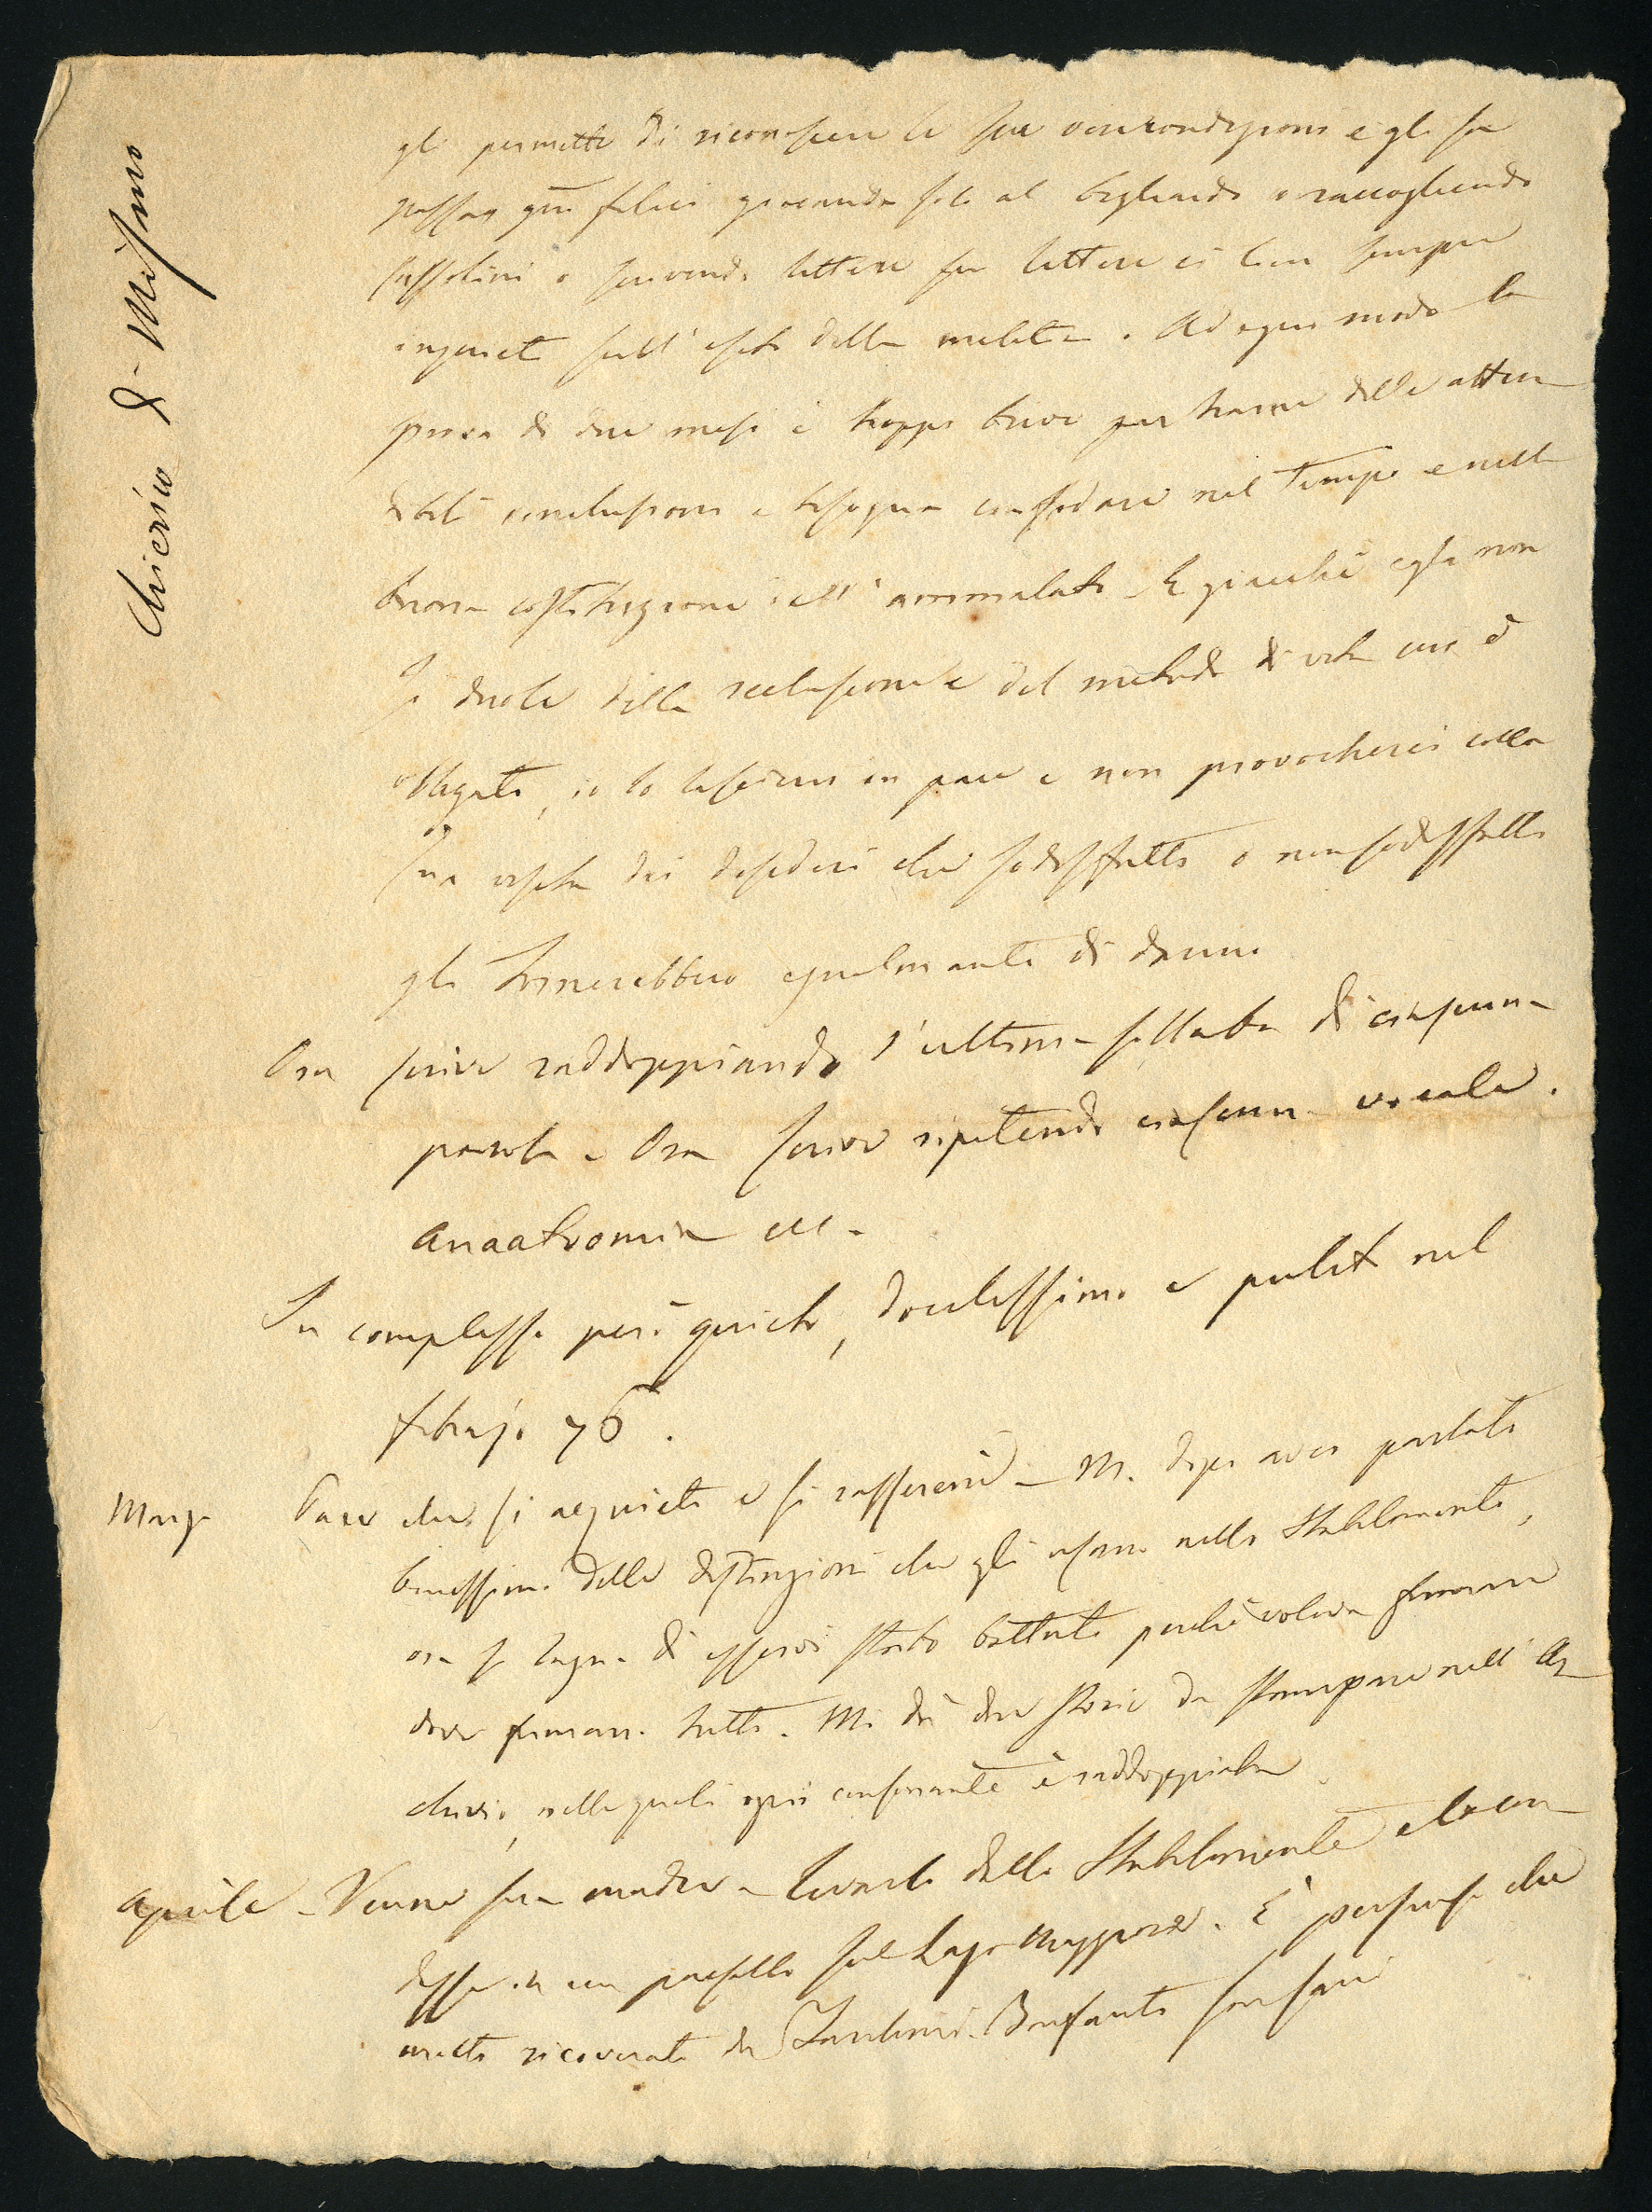 Chierico di Misano
gli permette di riconoscere le sue vere condizioni e gli fa
passar giorni felici giocando solo al bigliardo o raccogliendo
sassolini o scrivendo lettere su lettere ci lascia sempre
inquieti sull'esito della malattia. Ad ogni modo la
prova di due mesi è troppo breve per trarne delle atten
dibili conclusioni e bisogna confidare nel tempo e nella
buona costituzione dell'ammalato. E giacchè egli non
si duole della reclusione e del metodo di vita cui è
obbligato, io lo lascierei in pace e non provocherei colla
sua uscita dei desideri che sodisfatti o non sodisfatti
gli tornerebbero egualmente di danno
Ora scrive raddoppiando l'ultima sillaba di ciascuna
parola e Ora scrive ripetendo ciascuna vocale.
anaatromia ecc.
In complesso però quieto, docilissimo e pulito nel
febrajo 76.
Marzo Pare che si acquieti e si rasserenò - M. dopo aver parlato
benissimo delle distinzioni che gli usano nello Stabilimento,
ora si lagna di esservi stato battuto perchè voleva fumare
dove fumano tutti. Mi dà due storie da stampare nell'Ar
chivio, nelle quali ogni consonante è raddoppiata
Aprile - Venne sua madre a levarlo dallo Stabilimento e lo con
dusse in un paesello sul Lago Maggiore. È persuaso che
matti ricoverati da Bonfanti son sani